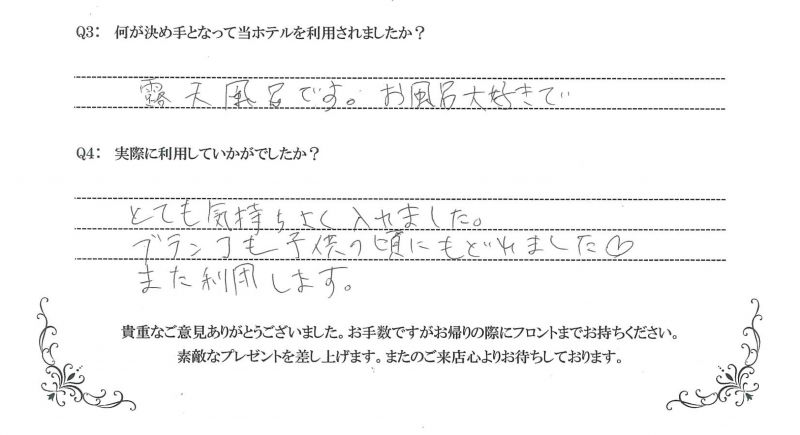 Q3: 何が決め手となって当ホテルを利用されましたか？
露天風呂です。お風呂大好きで
Q4: 実際に利用していかがでしたか？
とても気持ちよく入れました。
ブランコも子供の頃にもどれました♡
また利用します。
貴重なご意見ありがとうございました。お手数ですがお帰りの際にフロントまでお持ちください。
素敵なプレゼントを差し上げます。またのご来店心よりお待ちしております。